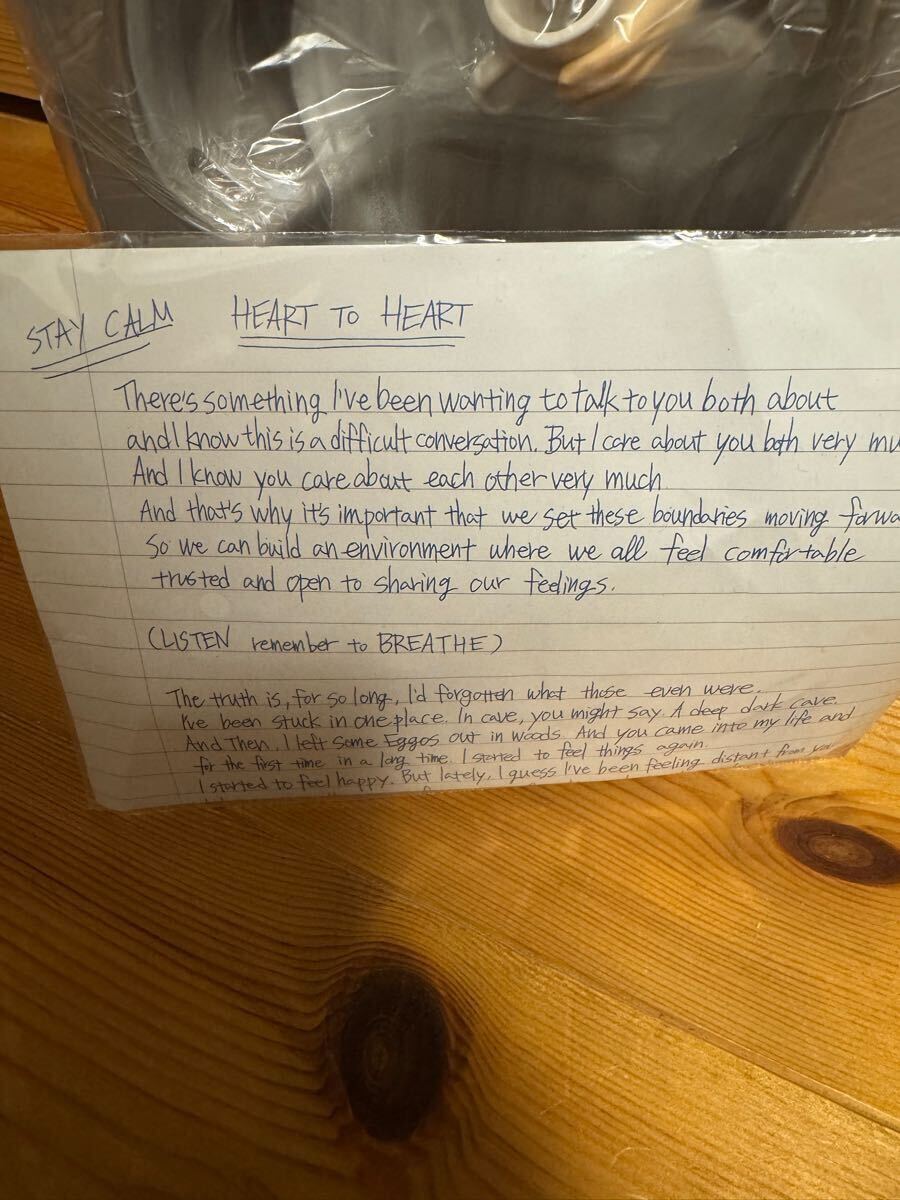 STAY CALM HEART TO HEART
There's something I've been wanting to talk to you both about
and I know this is a difficult conversation. But I care about you both very mu
And I know you care about each other very much
And that's why it's important that we set these boundaries moving forwa
So we can build an environment where we all feel comfortable
trusted and open to sharing our feelings.
(LISTEN remember to BREATHE)
The truth is, for so long, I'd forgotten what those even were.
I've been stuck in one place. In cave, you might say. A deep dark cave.
And Then, I left some Eggos out in woods. And you came into my life and
for the first time in a long time. I started to feel things again.
I started to feel happy. But lately, I guess I've been feeling distant from you